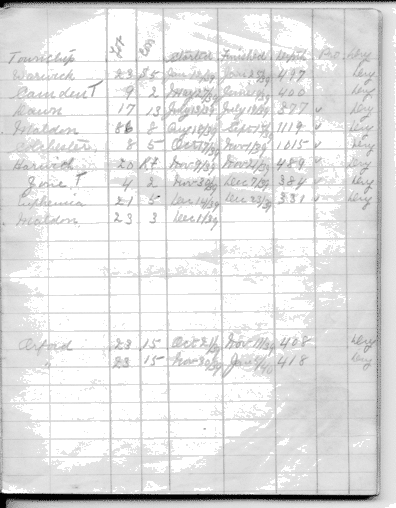 Township Lot Con Started Finished Depth Pro. Dry
Warwick 23 S5 Jan 12/39 Jan 25/39 497 Dry
Camden T 9 2 May 27/39 June 9/39 400 Dry
Dawn 17 13 July 13/39 July 19/39 377 ✓ Dry
Maldon 86 8 Aug 18/39 Sept 17/39 1119 ✓ Dry
Colchester 8 5 Oct 17/39 Nov 1/39 1015 ✓ Dry
Harwich 20 R4 Nov 9/39 Nov 21/39 489 ✓ Dry
Zone T 4 2 Nov 30/39 Dec 7/39 384 ✓ Dry
Euphemia 21 5 Dec 14/39 Dec 23/39 331 ✓ Dry
Maldon 23 3 Dec 1/39
Orford 23 15 Oct 21/39 Nov 11/39 408 Dry
" 23 15 Nov 30/39 Jan 4/40 418 Dry